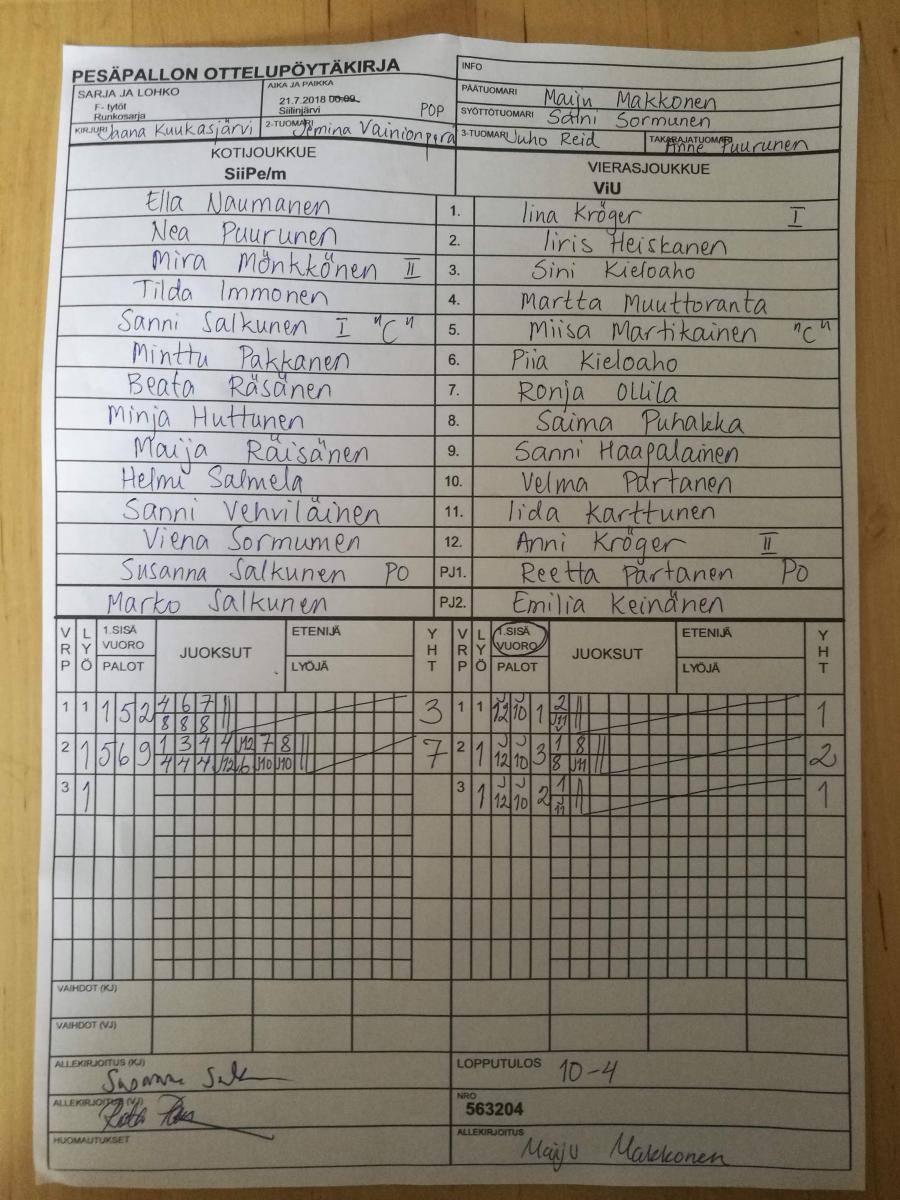 PESÄPALLON OTTELUPÖYTÄKIRJA
INFO
SARJA JA LOHKO
F- tytöt
Runkosarja
AIKA JA PAIKKA
21.7.2018 00.00
Siilinjärvi
POP
PÄÄTUOMARI Maiju Makkonen
SYÖTTÖTUOMARI Salni Sormunen
KIRJURI Jaana Kuukasjärvi
2-TUOMARI Jemina Vainionperä
3-TUOMARI Juho Reid
TAKARAJATUOMARI Anne Puurunen
KOTIJOUKKUE
SiiPe/m
VIERASJOUKKUE
ViU
Ella Naumanen 1. Iina Kröger I
Nea Puurunen 2. Iiris Heiskanen
Mira Mönkkönen II 3. Sini Kieloaho
Tilda Immonen 4. Martta Muuttoranta
Sanni Salkunen I "C" 5. Miisa Martikainen "C"
Minttu Pakkanen 6. Piia Kieloaho
Beata Räsänen 7. Ronja Ollila
Minja Huttunen 8. Saima Puhakka
Maija Räisänen 9. Sanni Haapalainen
Helmi Salmela 10. Velma Partanen
Sanni Vehviläinen 11. Iida Karttunen
Viena Sormumen 12. Anni Kröger II
Susanna Salkunen PO PJ1. Reetta Partanen PO
Marko Salkunen PJ2. Emilia Keinänen
VRP LYÖ 1.SISÄ VUORO PALOT JUOKSUT ETENIJÄ LYÖJÄ YHT VRP LYÖ 1.SISÄ VUORO PALOT JUOKSUT ETENIJÄ LYÖJÄ YHT
1 1 1 5 2 4 6 7 3 1 1 J12 J10 1 2 1
8 8 8 J11
2 1 5 6 9 1 3 4 4 J12 7 8 7 2 1 J12 J10 3 1 8 2
4 4 4 J12 6 J10 J10 8 J11
3 1 3 1 J12 J10 2 1 1
J11
VAIHDOT (KJ)
VAIHDOT (VJ)
ALLEKIRJOITUS (KJ)
LOPPUTULOS 10-4
ALLEKIRJOITUS (VJ)
NRO
563204
HUOMAUTUKSET
ALLEKIRJOITUS
Maiju Makkonen